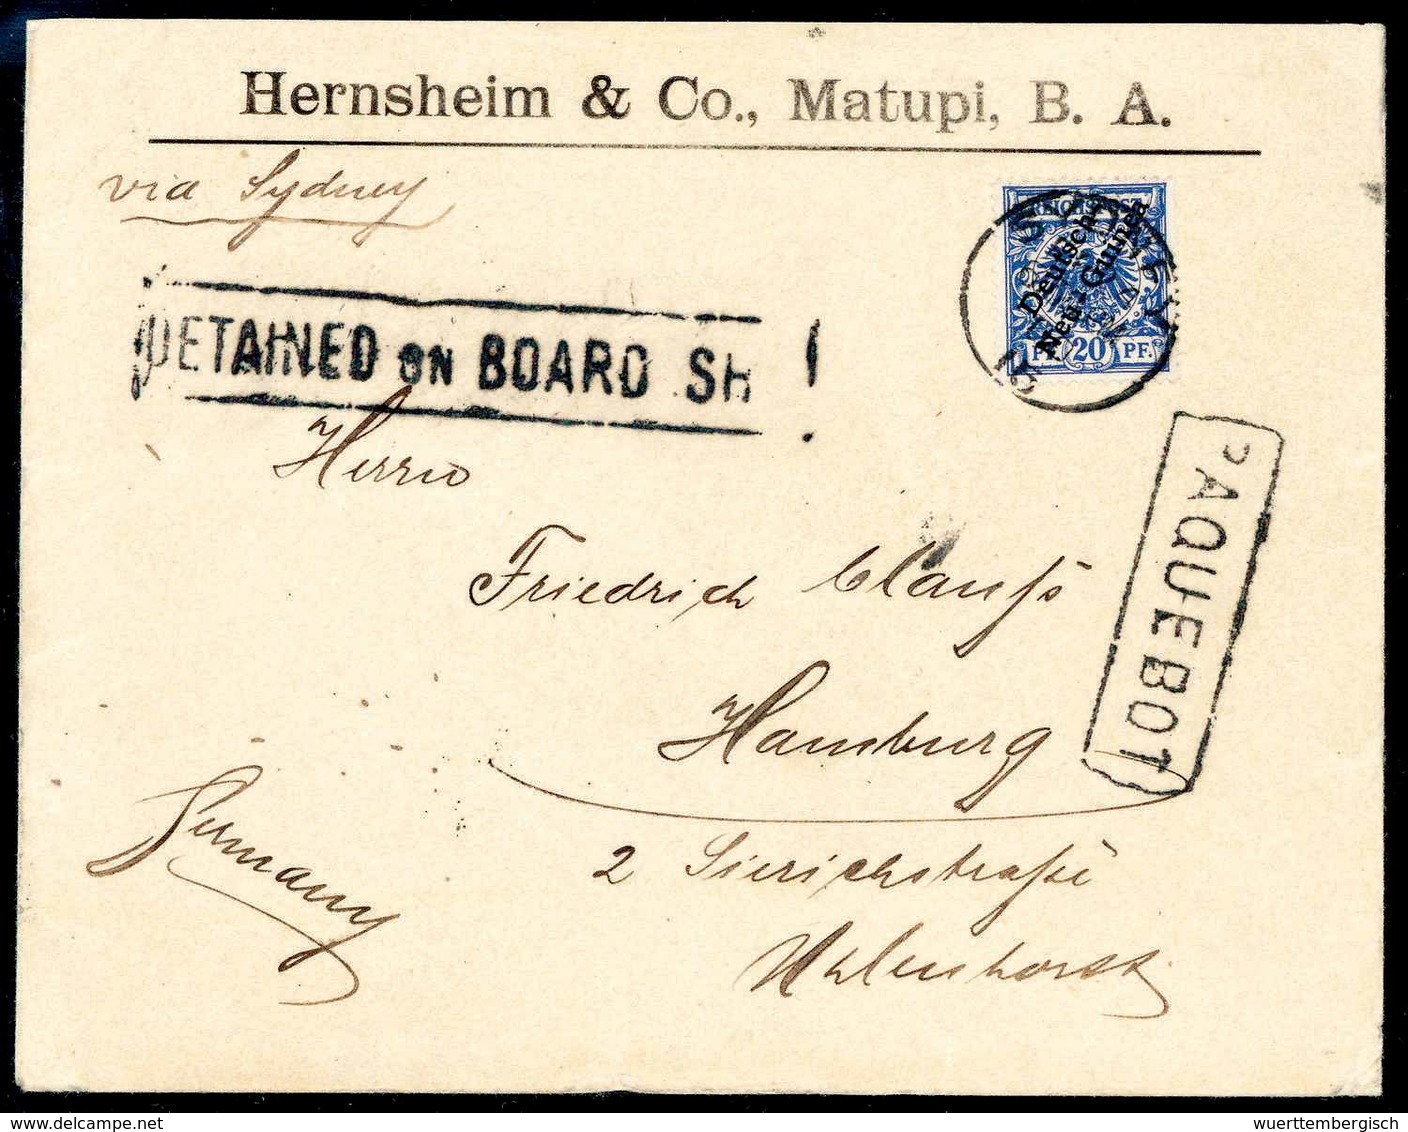 Hernsheim & Co., Matupi, B. A.
via Sydney
DETAINED ON BOARD SH !
SYDNEY
REICHSPOST
Deutsch-
Neu-Guinea
PF. 20 PF.
PAQUEBOT
Herrn
Friedrich Clauß
Hamburg
2 Sierichstraße
Uhlenhorst
Germany
wuerttembergisch